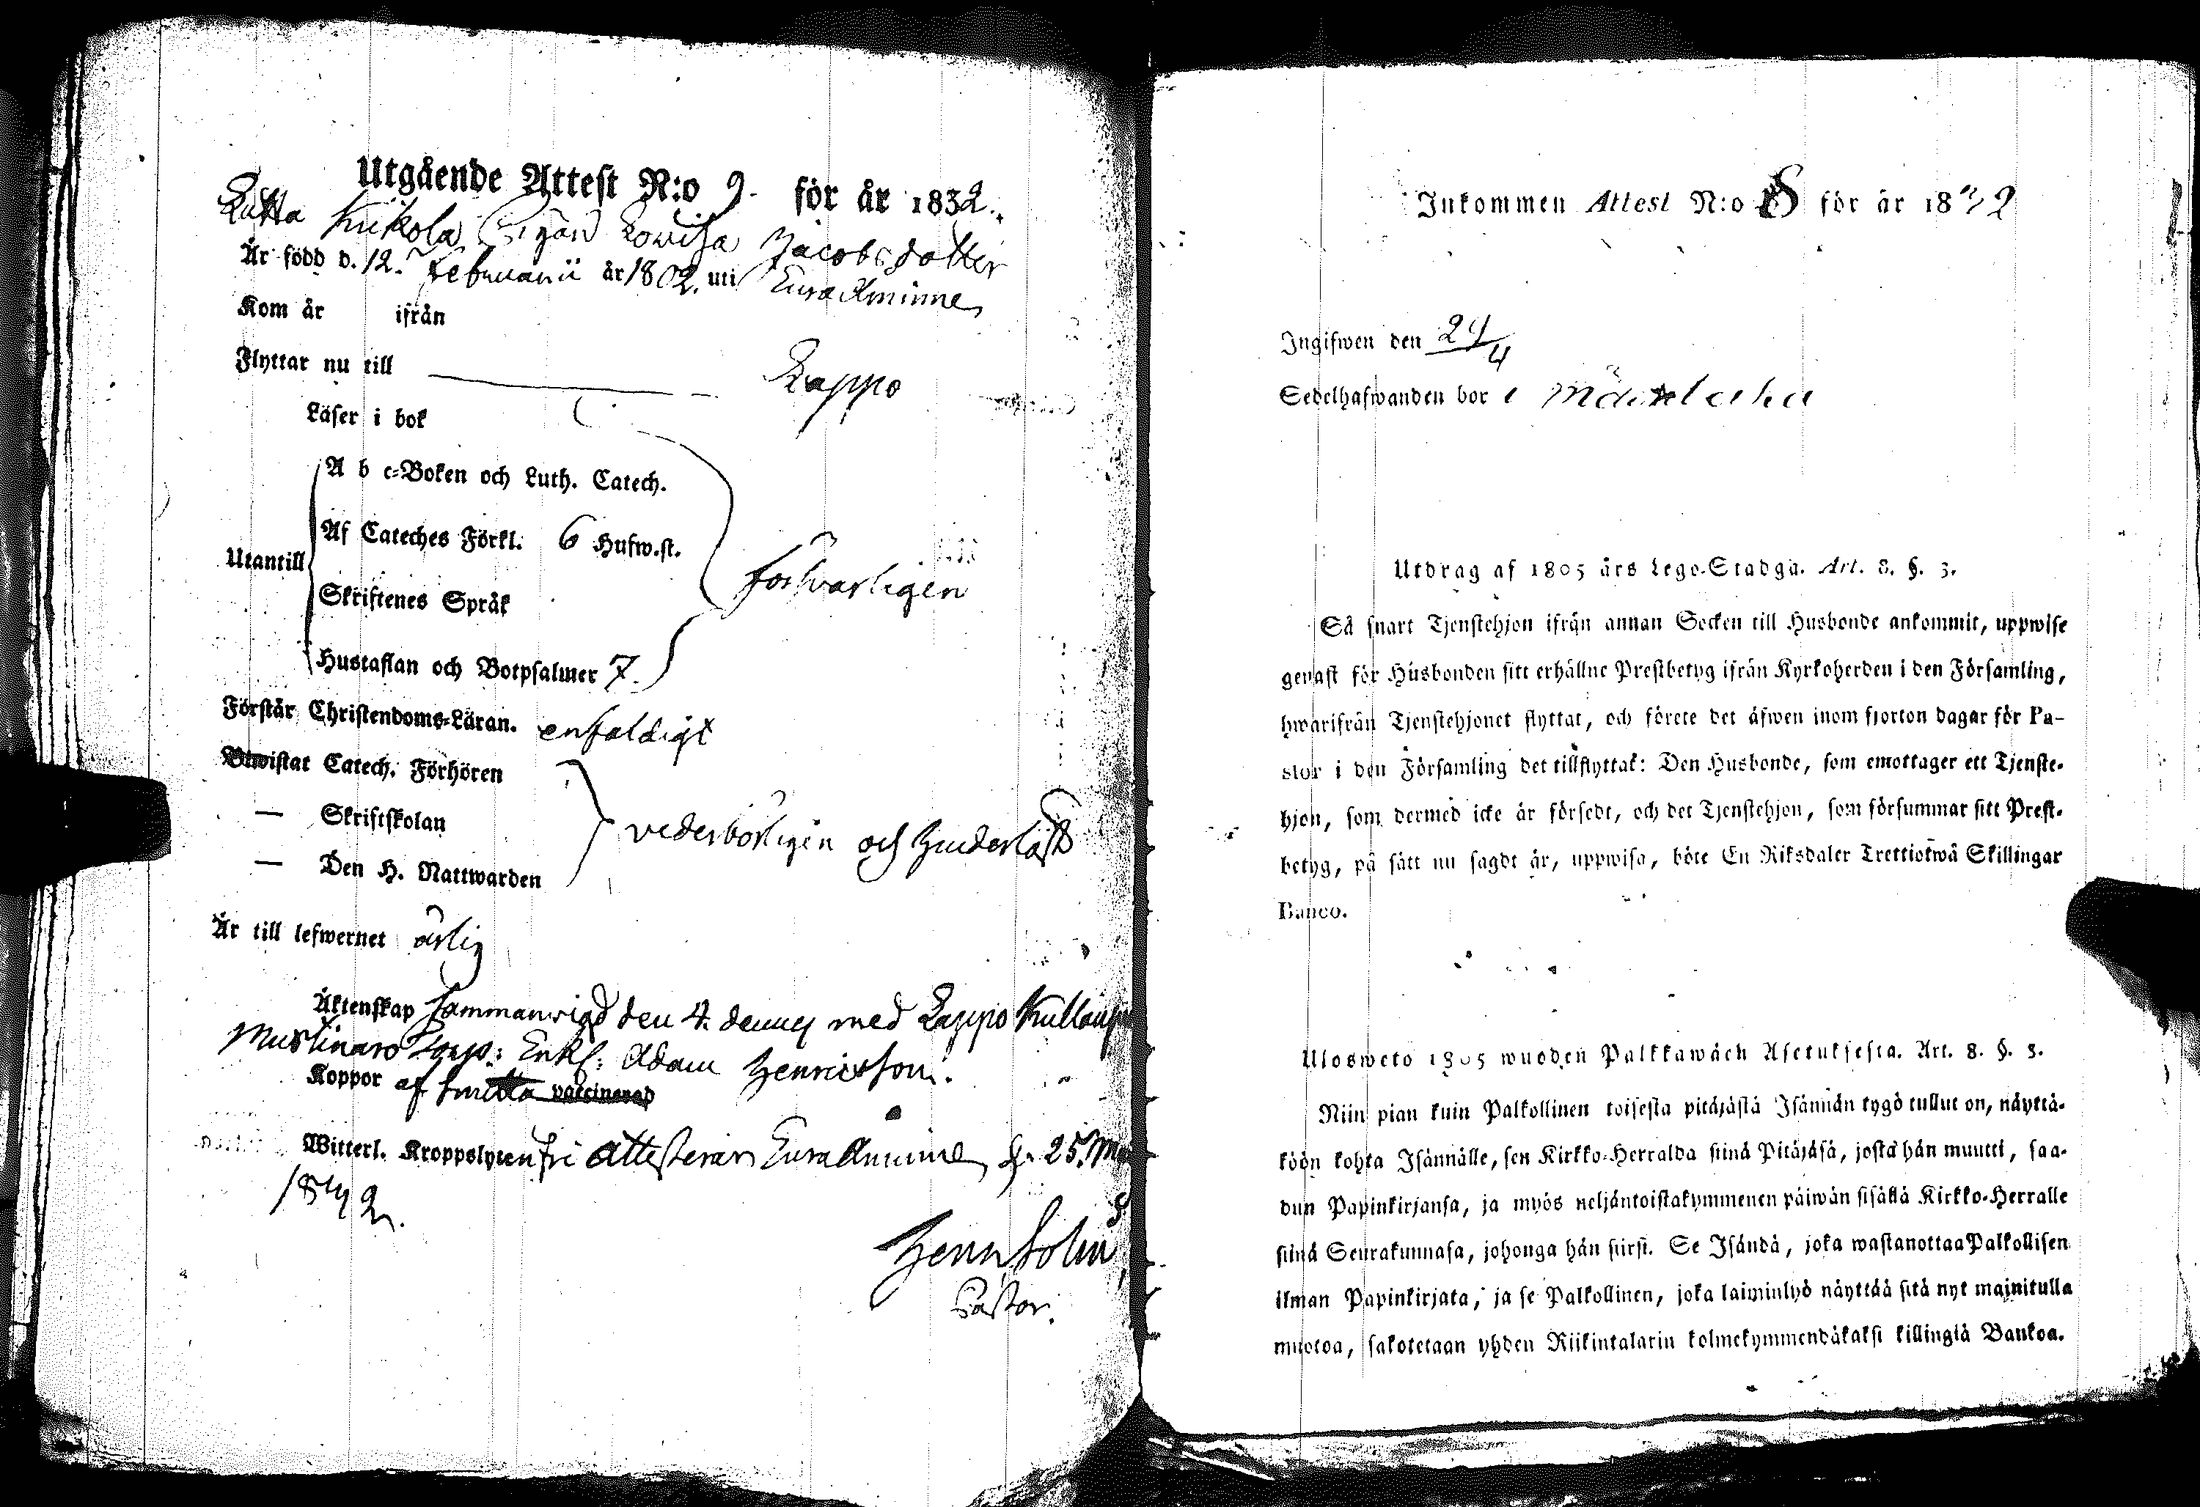 Utgående Attest N:o 9. för år 1832.
Kukola Pigan Lovisa Jacobsdotter
Är född d. 12. Februarii år 1802. uti Euraåminne
Kom år ifrån
Flyttar nu till Lappo
Läser i bok
A b c-Boken och Luth. Catech.
Af Cateches Förkl. 6 Hufw.st.
Utantill
försvarligen
Skriftenes Språk
Hustaflan och Botpsalmer 7.
Förstår Christendoms-Läran. enfaldigt
Biwistat Catech. Förhören
— Skriftskolan
vederbörligen och
— Den H. Nattwarden
Är till lefwernet ärlig
Äktenskap sammanvigd den 4. dennes med Lappo
Enkl: Adam Henricsson.
Koppor af vaccinerad
Witterl. Kroppslyten fri attesterar Euraåminne d. 25.
1832.
Pastor.
Inkommen Attest N:o 8 för år 1832
Ingifwen den 24/4
Sedelhafwanden bor i
Utdrag af 1805 års Lego-Stadga. Art. 8. §. 3.
Så snart Tjenstehjon ifrån annan Socken till Husbonde ankommit, uppwise
genast för Husbonden sitt erhållne Prestbetyg ifrån Kyrkoherden i den Församling,
hwarifrån Tjenstehjonet flyttat, och förete det äfwen inom fjorton dagar för Pa-
stor i den Församling det tillflyttat: Den Husbonde, som emottager ett Tjenste-
hjon, som dermed icke är försedt, och det Tjenstehjon, som försummar sitt Prest-
betyg, på sätt nu sagdt är, uppwisa, böte En Riksdaler Trettiotwå Skillingar
Banco.
Ulosweto 1805 wuoden Palkkawäen Asetuksesta. Art. 8. §. 3.
Niin pian kuin Palkollinen toisesta pitäjästä Isännän tygö tullut on, näyttä-
köön kohta Isännälle, sen Kirkko-Herralda siinä Pitäjäsä, josta hän muutti, saa-
dun Papinkirjansa, ja myös neljäntoistakymmenen päiwän sisällä Kirkko-Herralle
siinä Seurakunnasa, johonga hän siirsi. Se Isändä, joka wastanottaa Palkollisen
ilman Papinkirjata, ja se Palkollinen, joka laiminlyö näyttää sitä nyt mainitulla
muotoa, sakotetaan yhden Riikintalarin kolmekymmendäkaksi killingiä Bankoa.